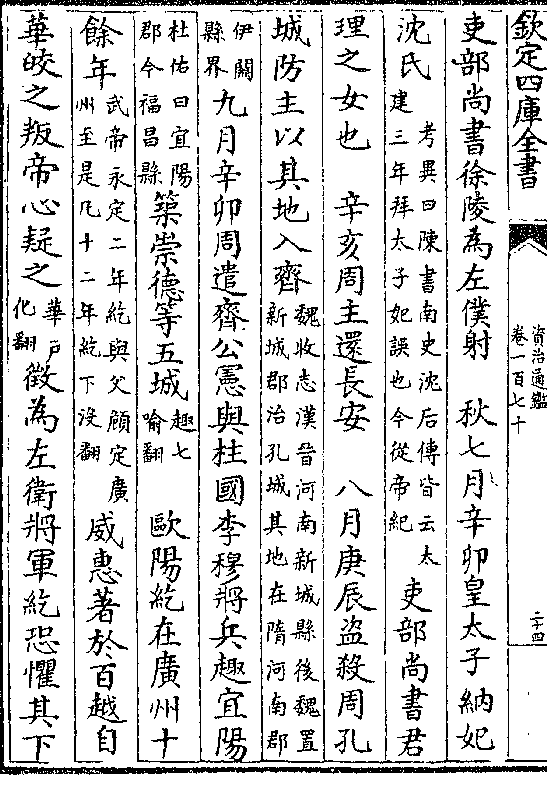 欽定四庫全書
資治通鑑
卷一百七十
二十四
吏部尚書徐陵為左僕射 秋七月辛卯皇太子納妃
沈氏考異曰陳書南史沈后傳皆云太
建三年拜太子妃誤也今從帝紀吏部尚書君
理之女也 辛亥周主還長安 八月庚辰盜殺周孔
城防主以其地入齊魏收志漢晉河南新城縣後魏置
新城郡治孔城其地在隋河南郡
伊闕
縣界九月辛卯周遣齊公憲與柱國李穆將兵趣宜陽
杜佑曰宜陽
郡今福昌縣築崇德等五城趣七
喻翻 歐陽紇在廣州十
餘年武帝永定二年紇與父頠定廣
州至是凡十二年紇下沒翻威惠著於百越自
華皎之叛帝心疑之華戶
化翻徵為左衛將軍紇恐懼其下